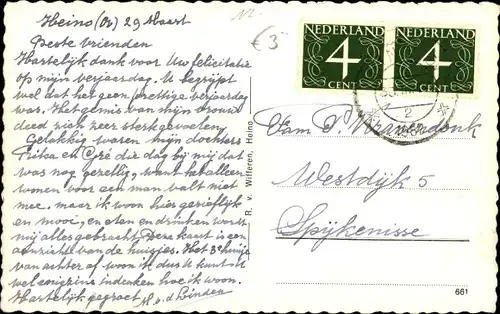 Heino (Ov) 29 Maart
Beste vrienden
Hartelijk dank voor Uw felicitatie
op mijn verjaardag. U begrijpt
wel dat het geen prettige verjaardag
was. Het gemis van mijn vrouw
deed zich zeer sterk gevoelen.
Gelukkig waren mijn dochters
en die dag bij mij dat
was nog gezellig, want alleen
wonen voor een man valt niet
mee. maar ik woon hier gerieflijk
en mooi, en eten en drinken wordt
mij alles gebracht. Deze kaart is een
aanzicht van de huisjes. Het 3e huisje
van achter af woon ik dus U kunt het
wel enigzins indenken hoe ik woon.
Hartelijk gegroet H. v. d. Linden
€3
R. v. Wijfferen, Heino
NEDERLAND
4
CENT
NEDERLAND
4
CENT
2
Fam P.
Westdijk 5
Spijkenisse
661